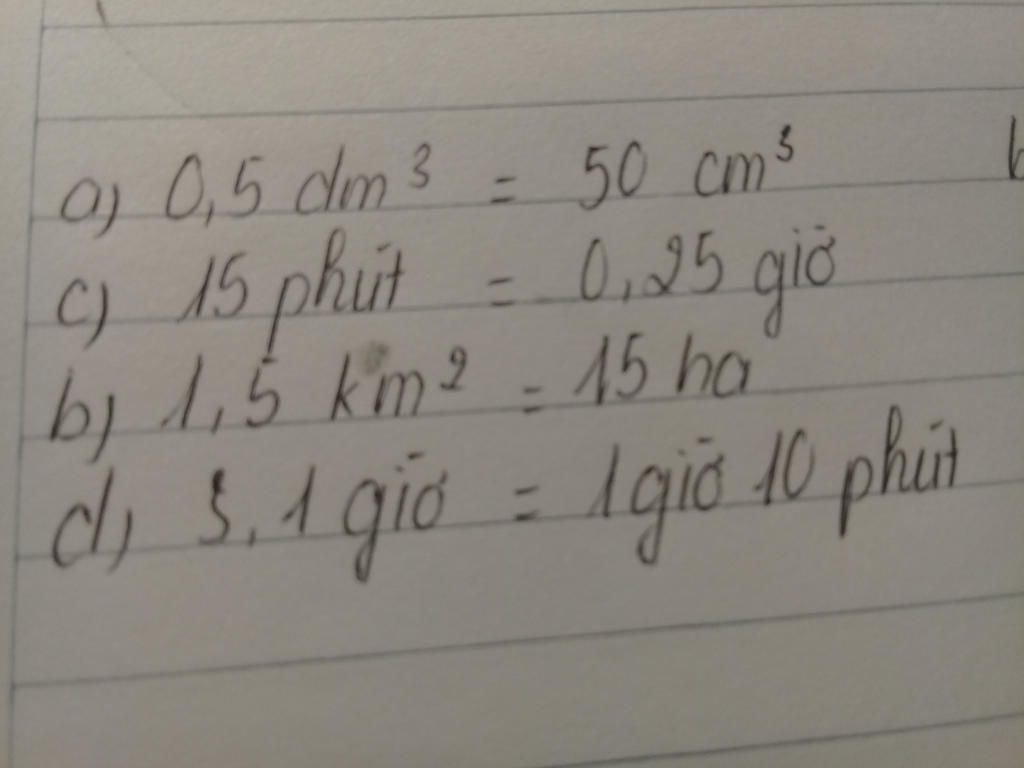 a) 0,5 dm³ = 50 cm³
c) 15 phút = 0,25 giờ
b) 1,5 km² = 15 ha
d) 3,1 giờ = 1 giờ 10 phút